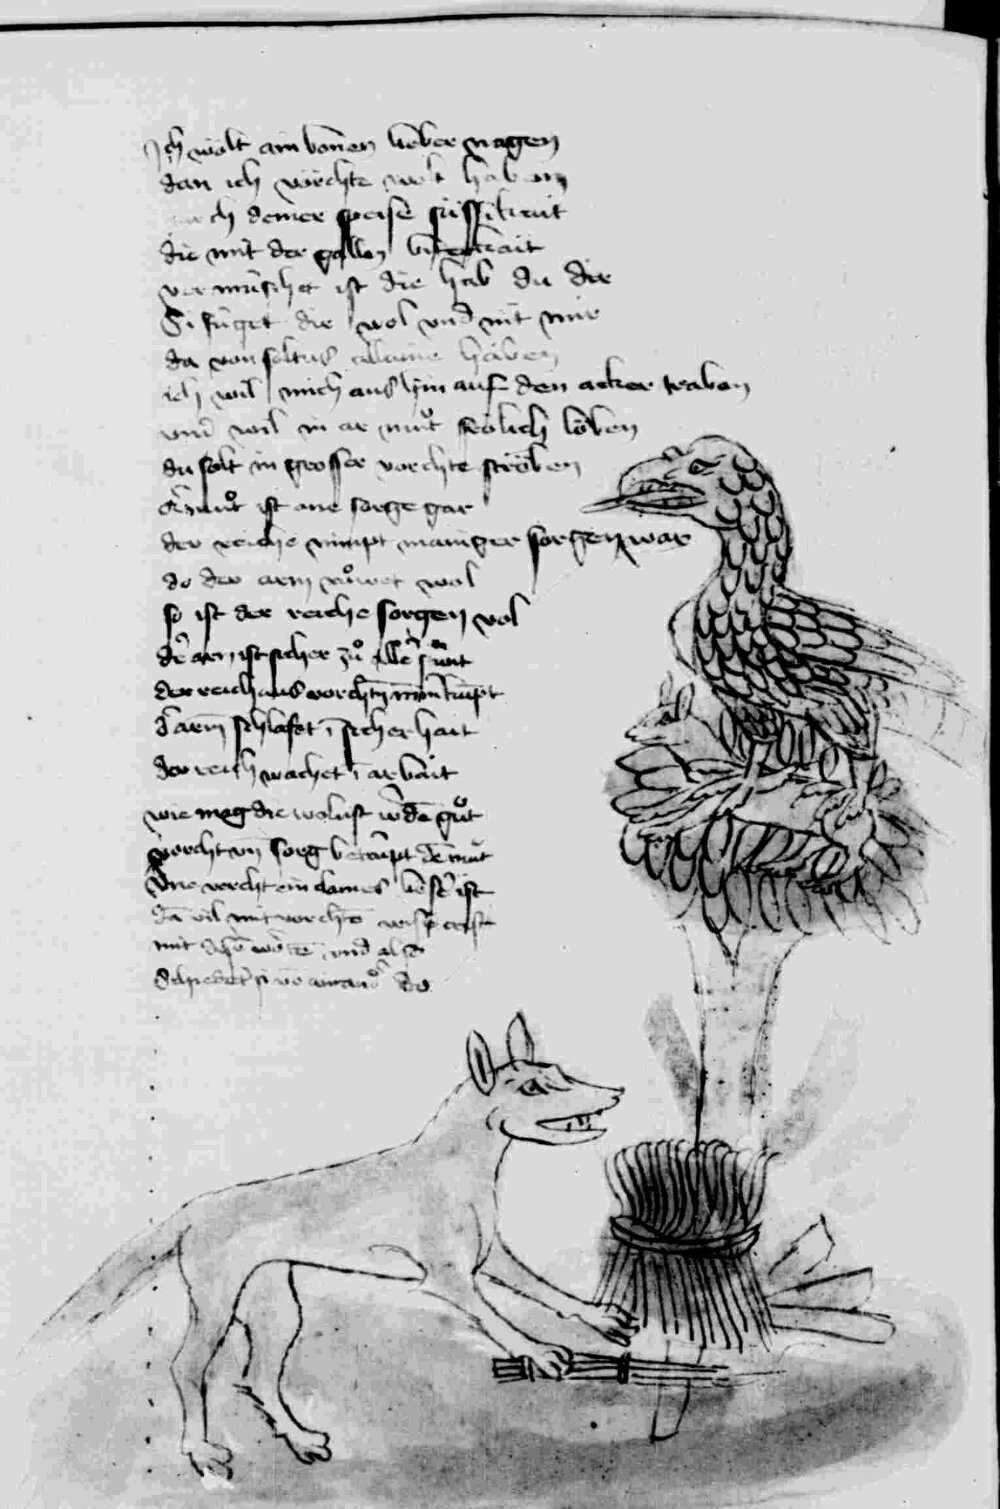 Ich wölt ain bonen lieber nagen
dan ich vörchte wolt haben
ch deiner speise süssikait
die mit der gallen bitterkait
vermüschet ist die hab du dir
Si füget dir wol und nit mir
da von soltus allaine haben
ich wil mich aus hin auf den acker traben
und wil in armůt frölich löben
du solt in grosser vorchte ströben
armůt ist ane sorge gar
der reiche nimpt maniger sorgen war
do der arm růwet wol
so ist der reiche sorgen vol
der arm ist sicher zů aller
der reich aus vorchten
der arm schlafet in sicherhait
der reich wachet in arbait
wie mag die wolust gůt
vorcht und sorg betrüpt den můt
One vorcht ein clames besser ist
dan vil mit vorchte
mit und also
do